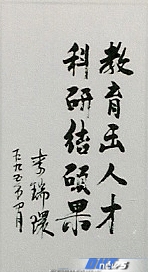 教育出人才
科研结硕果
李瑞环
一九九五年四月
news